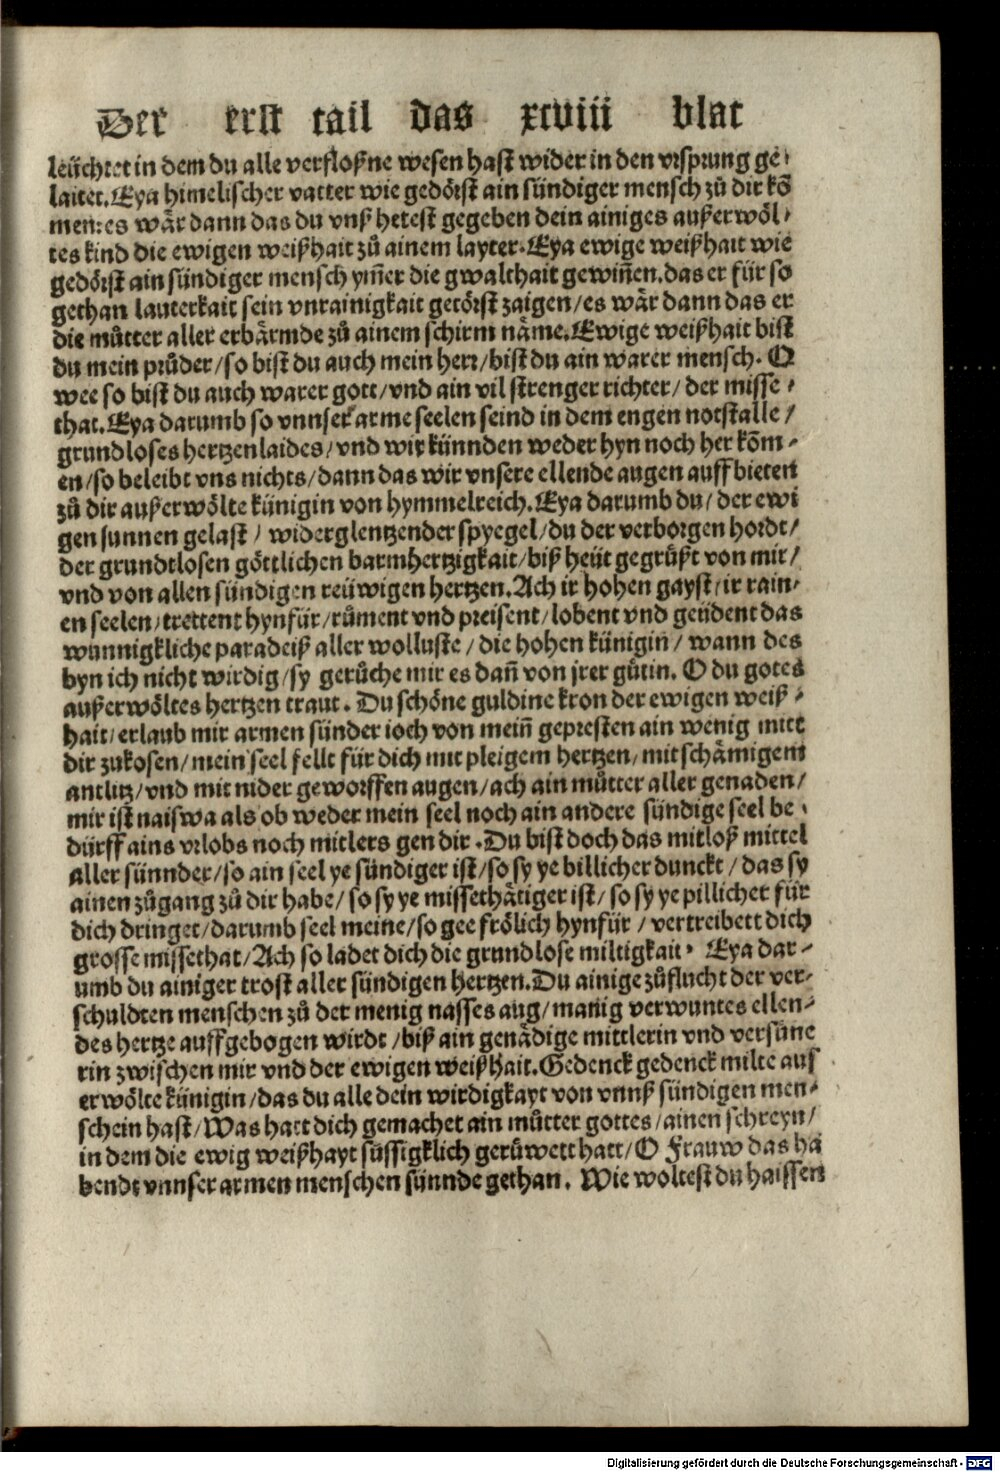 Der erst tail das xcviii blat
leüchtet in dem du alle verfloßne wesen hast wider in den vrsprung ge⸗
laitet. Eya himelischer vatter wie gedörst ain sündiger mensch zů dir kõ
men: es wär dann das du vnß hetest gegeben dein ainiges außerwöl⸗
tes kind die ewigen weißhait zů ainem layter. Eya ewige weißhait wie
gedörst ain sündiger mensch ym̃er die gwalthait gewiñen. das er für so
gethan lauterkait sein vnrainigkait getörst zaigen / es wär dann das er
die můtter aller erbärmde zů ainem schirm näme. Ewige weißhait bist
du mein průder / so bist du auch mein herr / bist du ain warer mensch. O
wee so bist du auch warer gott / vnd ain vil strenger richter / der misse⸗
that. Eya darumb so vnnser arme seelen seind in dem engen notstalle /
grundloses hertzenlaides / vnd wir künnden weder hyn noch her köm⸗
en / so beleibt vns nichts / dann das wir vnsere ellende augen auff bieten
zů dir außerwölte künigin von hymmelreich. Eya darumb du / der ewi
gen sunnen gelast / widerglentzender spyegel / du der verborgen hordt /
der grundtlosen göttlichen barmhertzigkait / biß heüt gegrüßt von mir /
vnd von allen sündigen reüwigen hertzen. Ach ir hohen gayst / ir rain⸗
en seelen / trettent hynfür / růment vnd preisent / lobent vnd geüdent das
wunnigkliche paradeiß aller wolluste / die hohen künigin̄ / wann des
byn ich nicht wirdig / sy gerůche mir es dañ von jrer gůtin. O du gotes
außerwöltes hertzen traut. Du schöne guldine kron der ewigen weiß⸗
hait / erlaub mir armen sünder ioch von mein̄ gepresten ain wenig mitt
dir zukosen / mein seel fellt für dich mit pleigem hertzen / mit schämigem
antlitz / vnd mit nider geworffen augen / ach ain můtter aller genaden /
mir ist naiswa als ob weder mein seel noch ain andere sündige seel be⸗
dürff ains vrlobs noch mitlers gen dir. Du bist doch das mitloß mittel
aller sünnder / so ain seel ye sündiger ist / so sy ye billicher dunckt / das sy
ainen zůgang zů dir habe / so sy ye missethätiger ist / so sy ye pillicher für
dich dringet / darumb seel meine / so gee frölich hynfür / vertreibett dich
grosse missethat / Ach so ladet dich die grundlose miltigkait. Eya dar⸗
umb du ainiger trost aller sündigen hertzen. Du ainige zůflucht der ver⸗
schuldten menschen zů der menig nasses aug / manig verwuntes ellen⸗
des hertze auffgebogen wirdt / biß ain genädige mittlerin vnd versüne
rin zwischen mir vnd der ewigen weißhait. Gedenck gedenck milte aus
erwölte künigin / das du alle dein wirdigkayt von vnnß sündigen men⸗
schein hast / Was hatt dich gemachet ain můtter gottes / ainen schreyn /
in dem die ewig weißhayt süssigklich gerůwett hatt / O Frauw das ha
bendt vnnser armen menschen sünnde gethan. Wie woltest du haissen
Digitalisierung gefördert durch die Deutsche Forschungsgemeinschaft - DFG